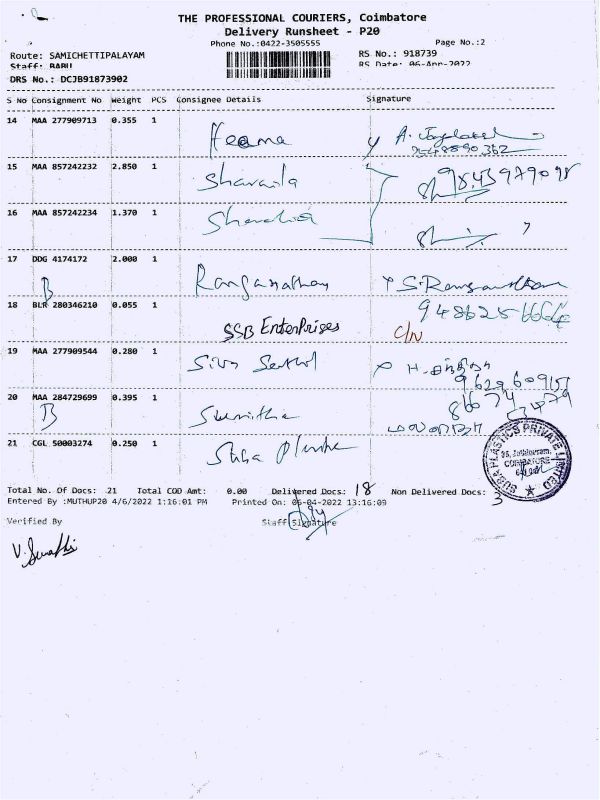 THE PROFESSIONAL COURIERS, Coimbatore
Delivery Runsheet - P20
Phone No.:0422-3505555
Page No.:2
Route: SAMICHETTIPALAYAM
RS No.: 918739
Staff: BABU
RS Date: 06-Apr-2022
DRS No.: DCJB91873902
S No Consignment No Weight PCS Consignee Details Signature
14 MAA 277909713 0.355 1
Heema
15 MAA 857242232 2.850 1
9843979098
16 MAA 857242234 1.370 1
17 DDG 4174172 2.000 1
Ranganathan
B
18 BLR 280346210 0.055 1
SSB Enterprises
C/N
19 MAA 277909544 0.280 1
Siva
20 MAA 284729699 0.395 1
B
Sumitha
21 CGL 50003274 0.250 1
Suba
SUBA PLASTICS PRIVATE LIMITED
COIMBATORE
Total No. Of Docs: 21 Total COD Amt: 0.00 Delivered Docs: 18 Non Delivered Docs: 3
Entered By :MUTHUP20 4/6/2022 1:16:01 PM Printed On: 06-04-2022 13:16:09
Verified By Staff Signature